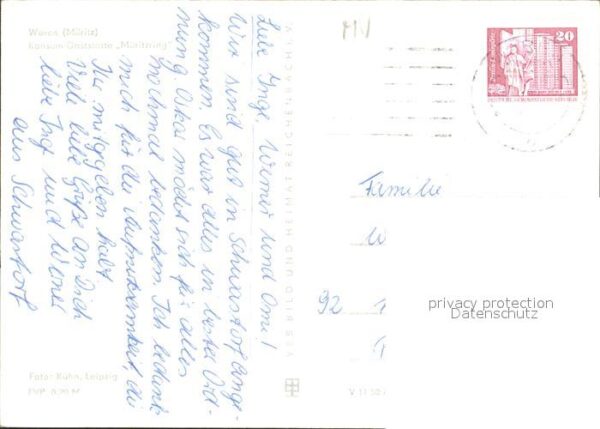 Waren (Müritz)
Konsum-Gaststätte „Müritzring"
Liebe Inge, Werner und Omi!
Wir sind gut in Schwastorf ange-
kommen. Es war alles in bester Ord-
nung. Oskar möchte sich für alles
nochmal bedanken. Ich bedanke
mich für die Aufmerksamkeit, die
Ihr mitgegeben habt.
Viele liebe Grüße an Dich
liebe Inge und Werner
aus Schwastorf
Foto: Kühn, Leipzig
EVP 0,20 M
VEB BILD UND HEIMAT REICHENBACH i. V.
V 11 50
MV
20
DEUTSCHE DEMOKRATISCHE REPUBLIK
Familie
W
92
privacy protection
Datenschutz